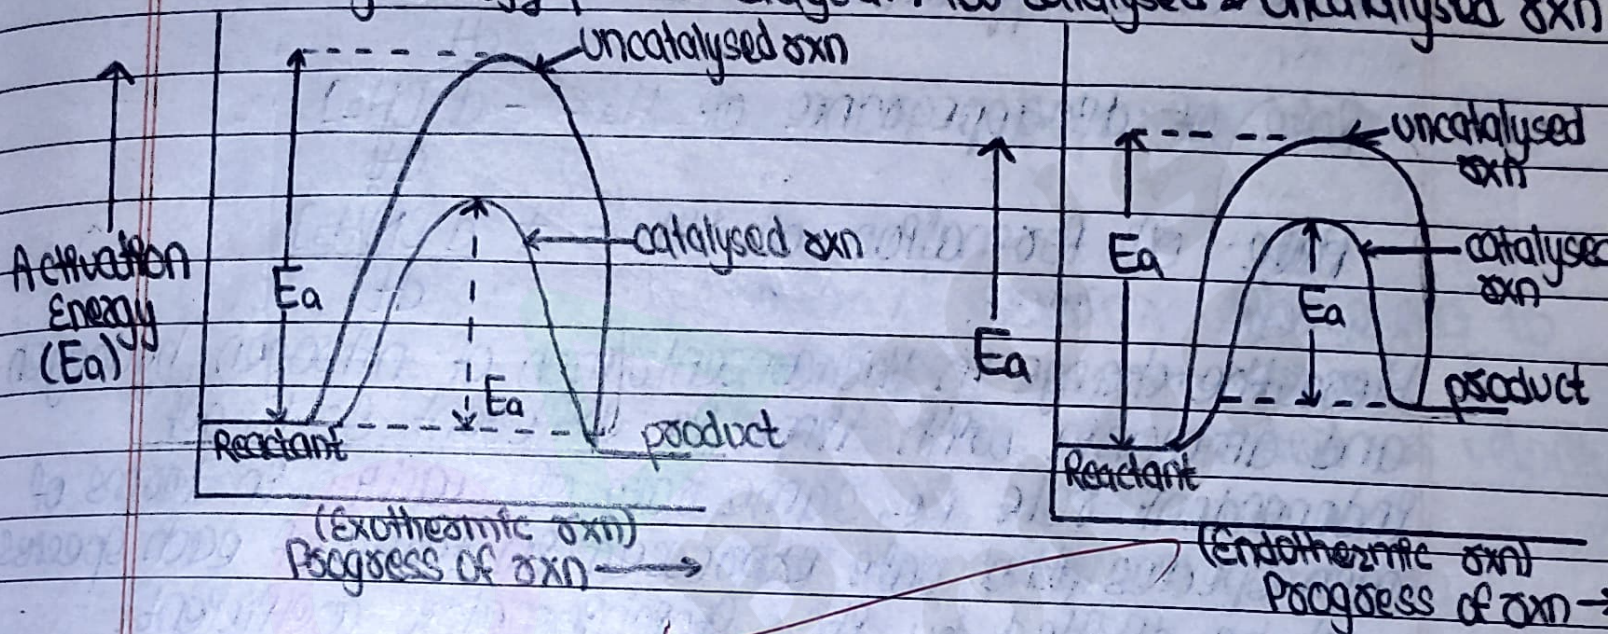 catalysed & uncatalysed rxn
uncatalysed rxn
catalysed rxn
Activation
Energy
(Ea)
Ea
Ea
Reactant
product
(Exothermic rxn)
Progress of rxn
uncatalysed
rxn
catalysed
rxn
Ea
Ea
Ea
product
Reactant
(Endothermic rxn)
Progress of rxn